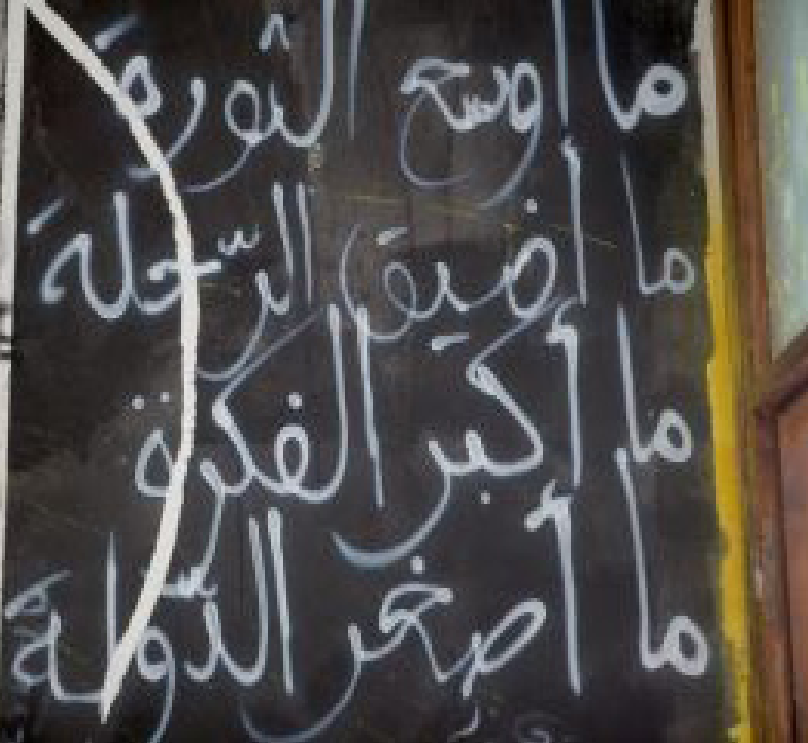 ما أوسع الثورة
ما أضيق الرّحلة
ما أكبر الفكرة
ما أصغر الدّولة